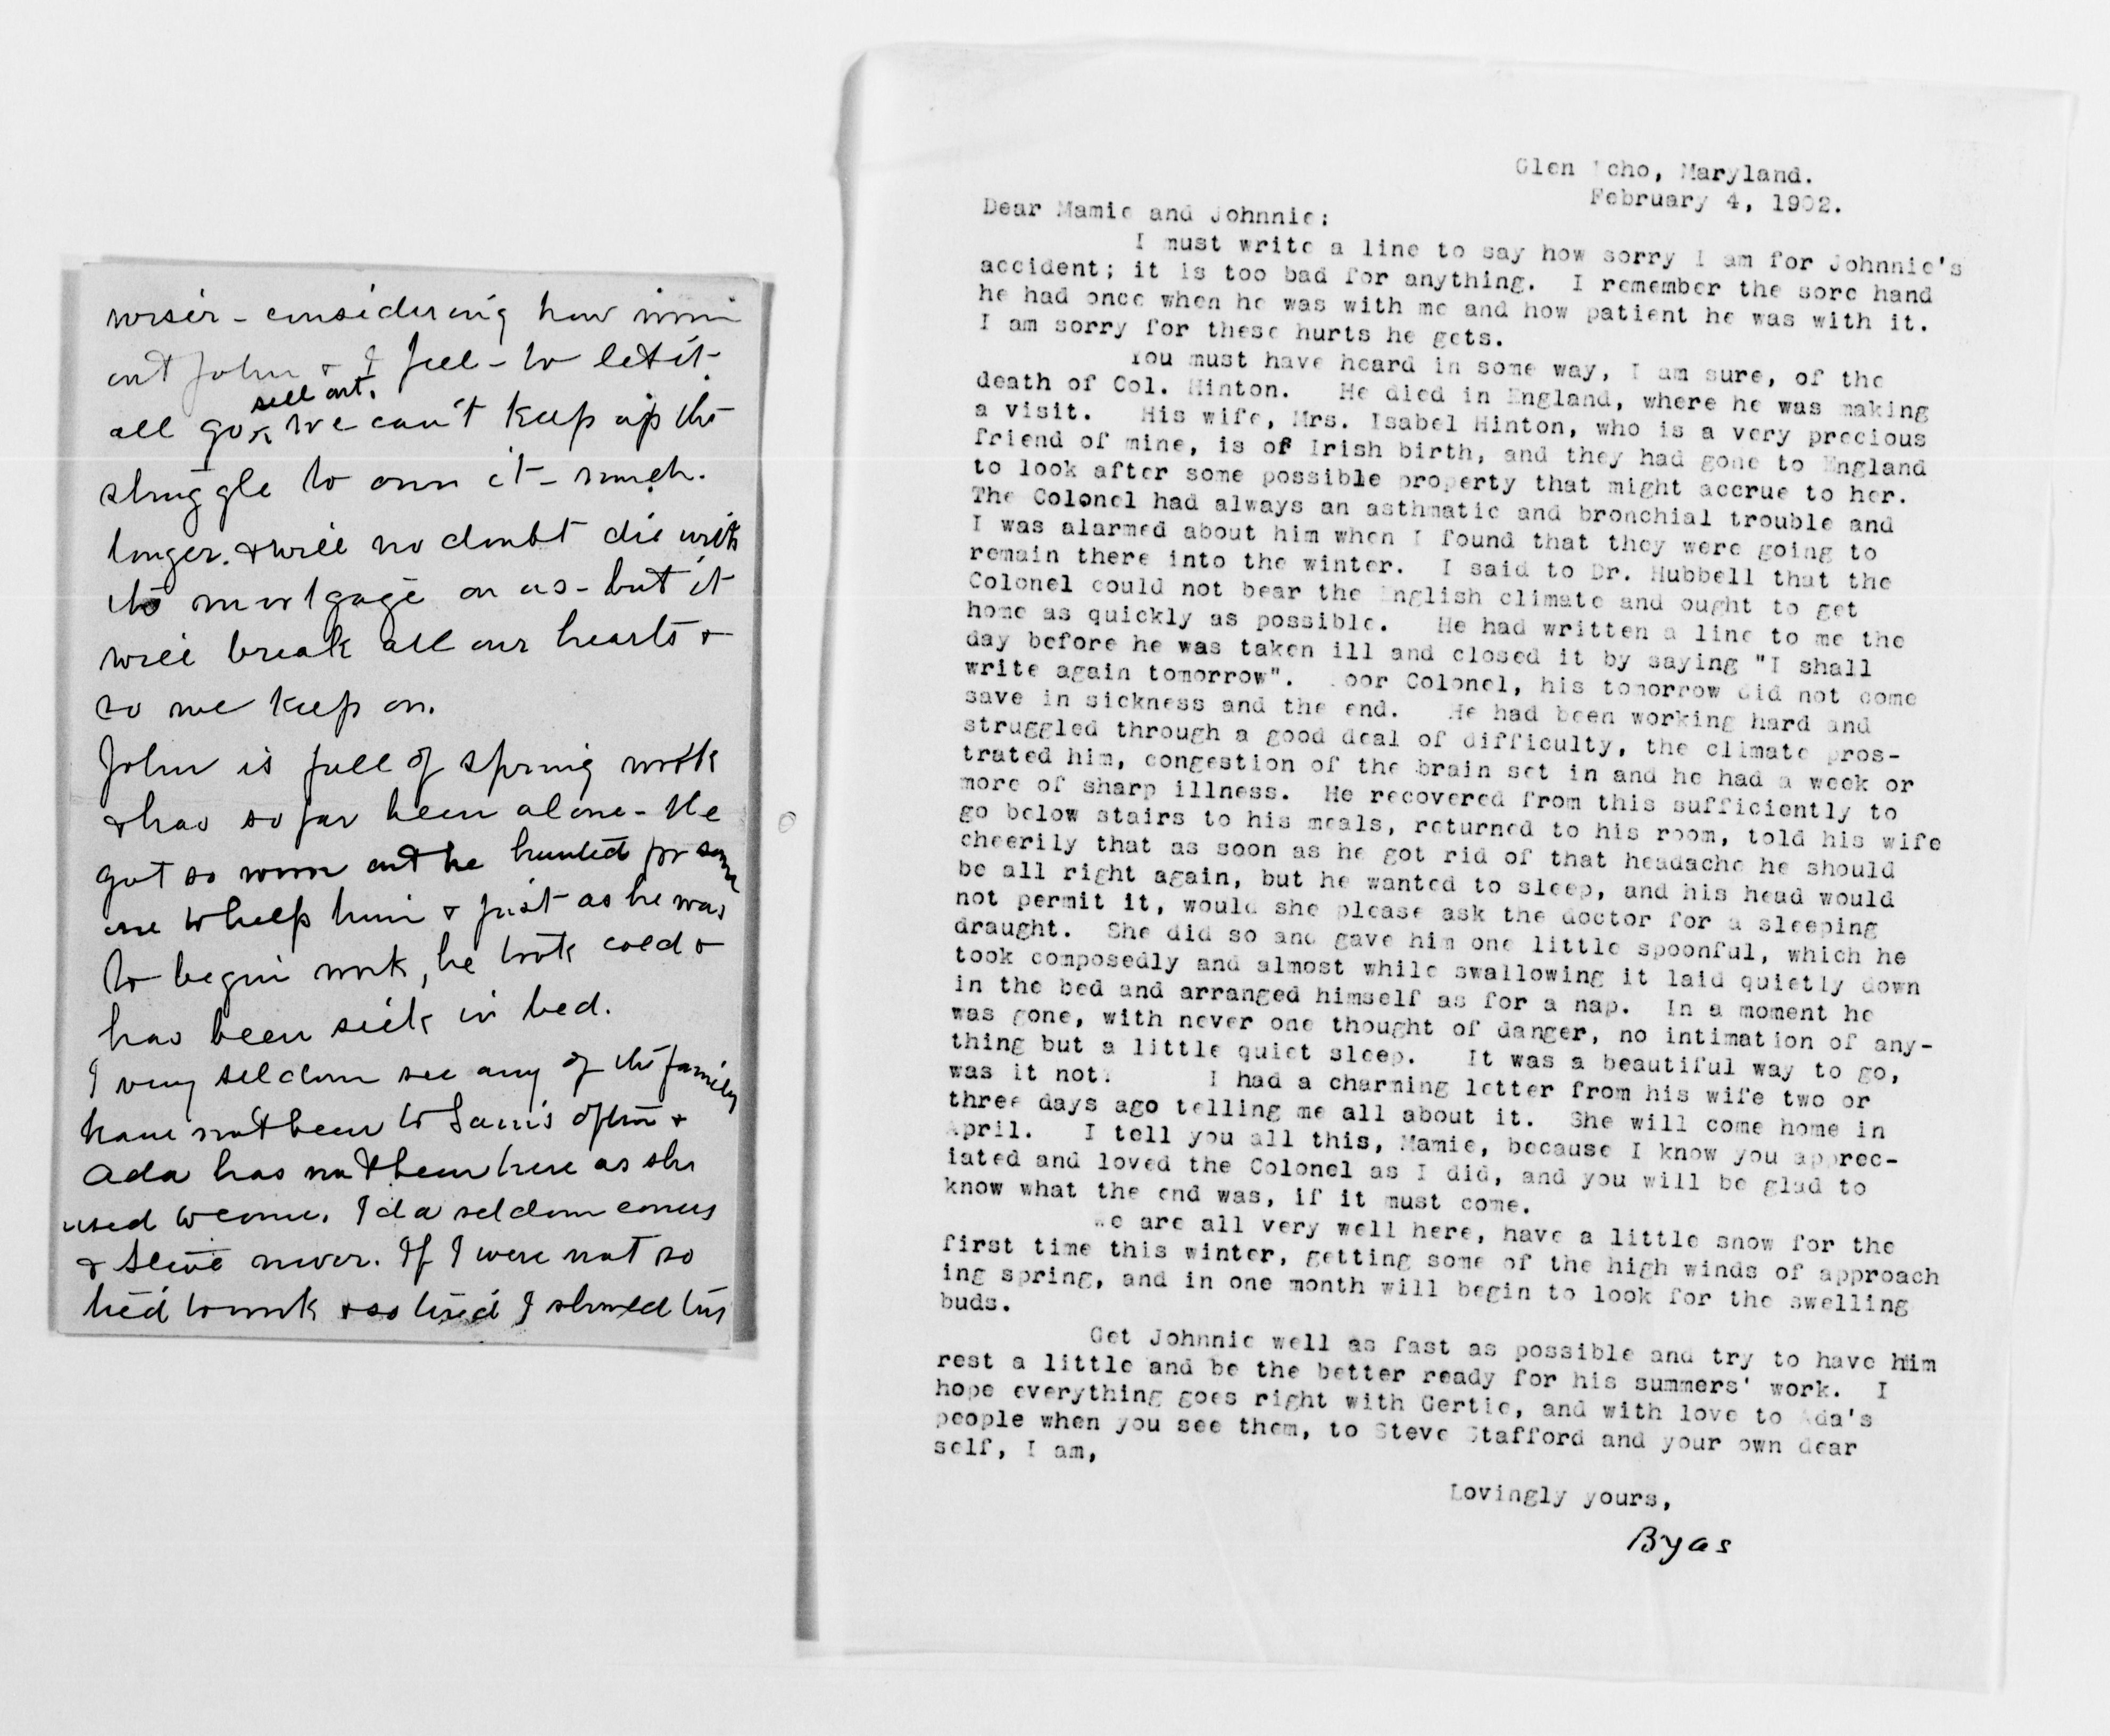 wiser - considering how worn
out John & I feel - to let it
sell out.
all go, we can't keep up the
struggle to own it - much.
longer. & will no doubt die with
its mortgage on us - but it
will break all our hearts &
so we keep on.
John is full of spring work
& has so far been alone - He
got so worn out he hunted for some
one to help him & just as he was
to begin work, he took cold &
has been sick in bed.
I very seldom see any of the family
have not been to Sam's often &
Ada has not been here as she
used to come. Ida seldom comes
& Steve never. If I were not so
tied to work & so tired I should
Glen Echo, Maryland.
February 4, 1902.
Dear Mamie and Johnnie:
I must write a line to say how sorry I am for Johnnie's
accident; it is too bad for anything. I remember the sore hand
he had once when he was with me and how patient he was with it.
I am sorry for these hurts he gets.
You must have heard in some way, I am sure, of the
death of Col. Hinton. He died in England, where he was making
a visit. His wife, Mrs. Isabel Hinton, who is a very precious
friend of mine, is of Irish birth, and they had gone to England
to look after some possible property that might accrue to her.
The Colonel had always an asthmatic and bronchial trouble and
I was alarmed about him when I found that they were going to
remain there into the winter. I said to Dr. Hubbell that the
Colonel could not bear the English climate and ought to get
home as quickly as possible. He had written a line to me the
day before he was taken ill and closed it by saying "I shall
write again tomorrow". Poor Colonel, his tomorrow did not come
save in sickness and the end. He had been working hard and
struggled through a good deal of difficulty, the climate pros-
trated him, congestion of the brain set in and he had a week or
more of sharp illness. He recovered from this sufficiently to
go below stairs to his meals, returned to his room, told his wife
cheerily that as soon as he got rid of that headache he should
be all right again, but he wanted to sleep, and his head would
not permit it, would she please ask the doctor for a sleeping
draught. She did so and gave him one little spoonful, which he
took composedly and almost while swallowing it laid quietly down
in the bed and arranged himself as for a nap. In a moment he
was gone, with never one thought of danger, no intimation of any-
thing but a little quiet sleep. It was a beautiful way to go,
was it not? I had a charming letter from his wife two or
three days ago telling me all about it. She will come home in
April. I tell you all this, Mamie, because I know you apprec-
iated and loved the Colonel as I did, and you will be glad to
know what the end was, if it must come.
We are all very well here, have a little snow for the
first time this winter, getting some of the high winds of approach
ing spring, and in one month will begin to look for the swelling
buds.
Get Johnnie well as fast as possible and try to have him
rest a little and be the better ready for his summers' work. I
hope everything goes right with Gertie, and with love to Ada's
people when you see them, to Steve Stafford and your own dear
self, I am,
Lovingly yours,
Byas